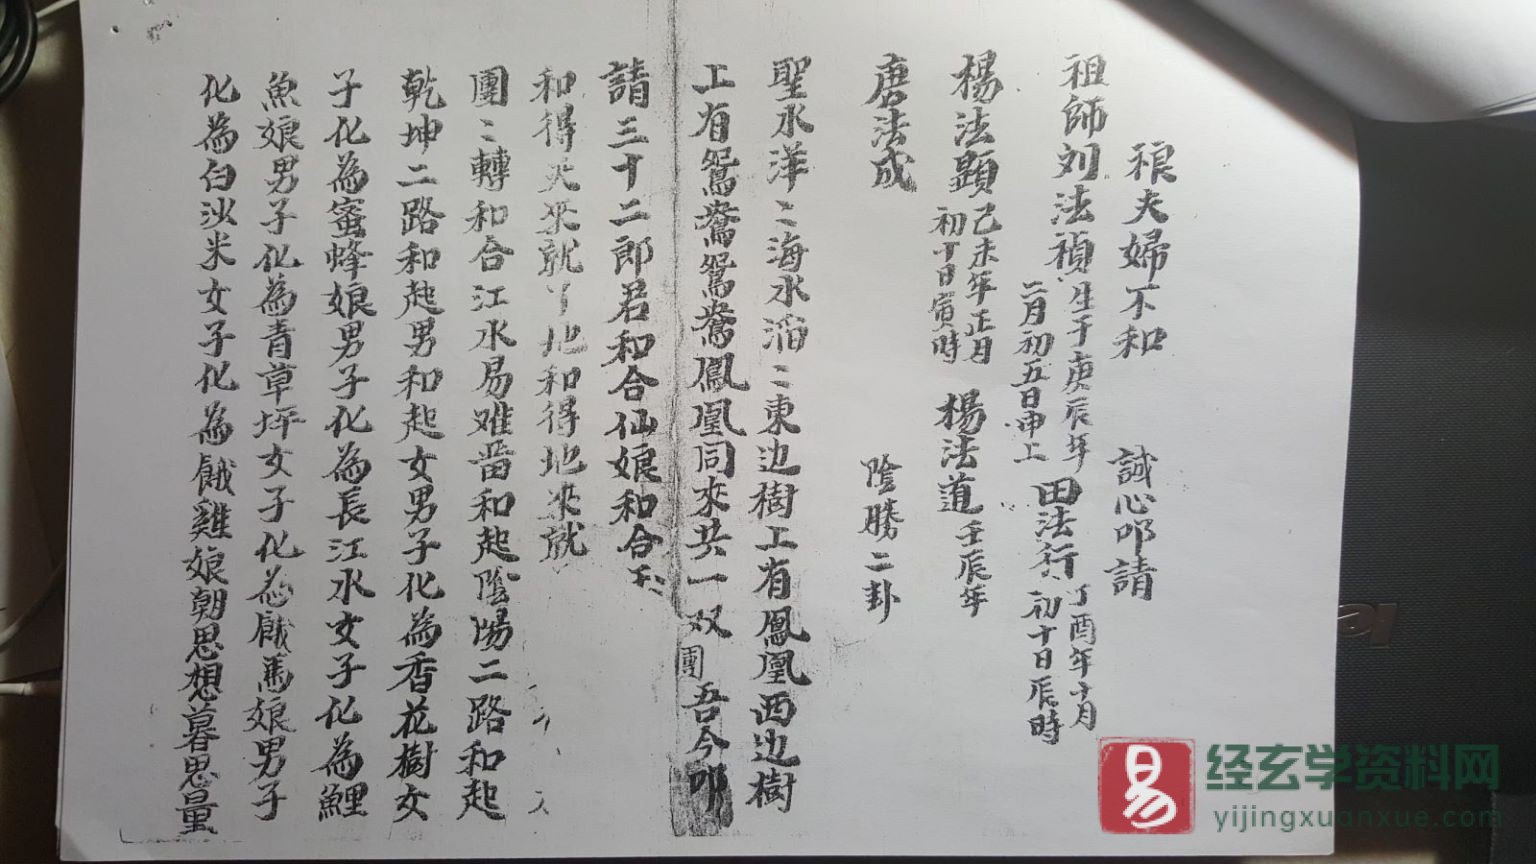 夫婦不和 誠心叩請
祖師刘法禎生于庚辰年二月初五日申上田法行丁酉年十月初十日辰時
楊法顕己未年正月初丁日寅時 楊法道壬辰年
唐法成 陰勝二卦
聖水洋〻海水滔〻東边樹工有鳳凰西边樹
工有鴛鴦鴛鴦鳳凰同來共一双團吾今叩
請三十二郎君和合仙娘和合
和得天來就丫地和得地來就
團〻轉和合江水易难畨和起陰陽二路和起
乾坤二路和起男和起女男子化為香花樹女
子化為蜜蜂娘男子化為長江水女子化為鯉
魚娘男子化為青草坪女子化為餓馬娘男子
化為白沙米女子化為餓雞娘朝思想暮思量
易
经玄学资料网
yijingxuanxue.com